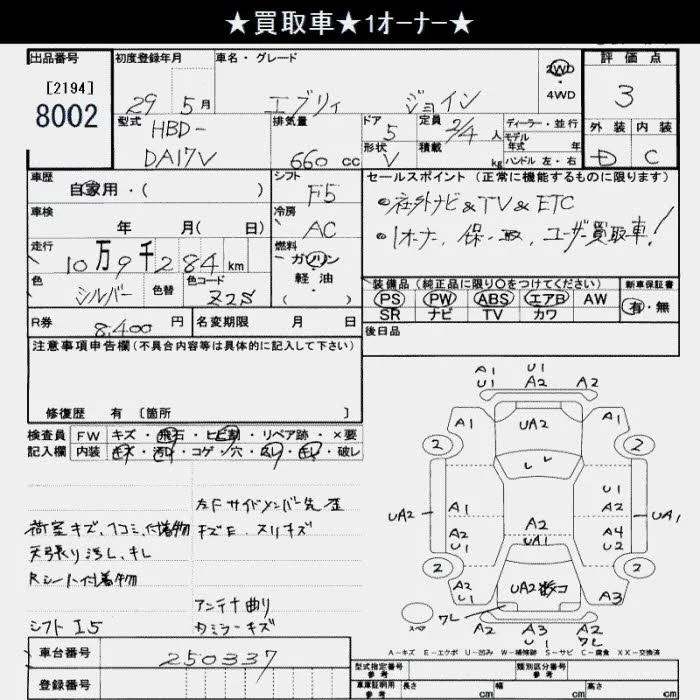 ★買取車★1オーナー★
出品番号
[2194]
8002
初度登録年月
29 5月
車名・グレード
エブリィ ジョイン
2WD
・
4WD
評価点
3
外装 内装
D C
型式
HBD-
DA17V
排気量
660 cc
ドア
5
形状
V
定員
2/4 人
積載
kg
ディーラー・並行
モデル
年式 年
ハンドル 左・右
車歴
自家用・( )
シフト
F5
車検
年 月( 日)
冷房
AC
走行
10万9千284km
燃料
ガソリン
軽油・
( )
色
シルバー
色替
色コード
Z2S
R券
8,400円
名変期限 月 日
セールスポイント(正常に機能するものに限ります)
●社外ナビ&TV&ETC
●1オーナ、保・取、ユーザー買取車!
装備品(純正品に限り○をつけてください)
新車保証書
PS PW ABS エアB AW
SR ナビ TV カワ
有・無
後日品
注意事項申告欄(不具合内容等は具体的に記入して下さい)
修復歴 有 [箇所 ]
検査員
記入欄
FW キズ・飛石・ヒビ割・リペア跡・×要
内装 キズ・汚れ・コゲ・穴・ムレ・キレ・破レ
左Fサイドメンバー先歪
荷室キズ、凹コミ、付着物
キズE、スリキズ
天張り汚し、キレ
Rシート付着物
アンテナ曲り
シフト I5
カミラーキズ
A1 U1
U1 A2 A2
A1 UA2 A1
2 2
レ レ
U1
UA2 A1 A2 UA1
A2 A2 A4
U1 UA1 U2
2 2
A2 UA2数コ
U1 A3
ワレ
スペア
A2 A3 A2
U1 ワレ
A−キズ E−エクボ U−凹み W−補修跡 S−サビ C−腐食 XX−交換済
車台番号
250337
登録番号
型式指定番号
参考
類別区分番号
参考
車庫証明用
参考
長さ cm 幅 cm 高さ cm